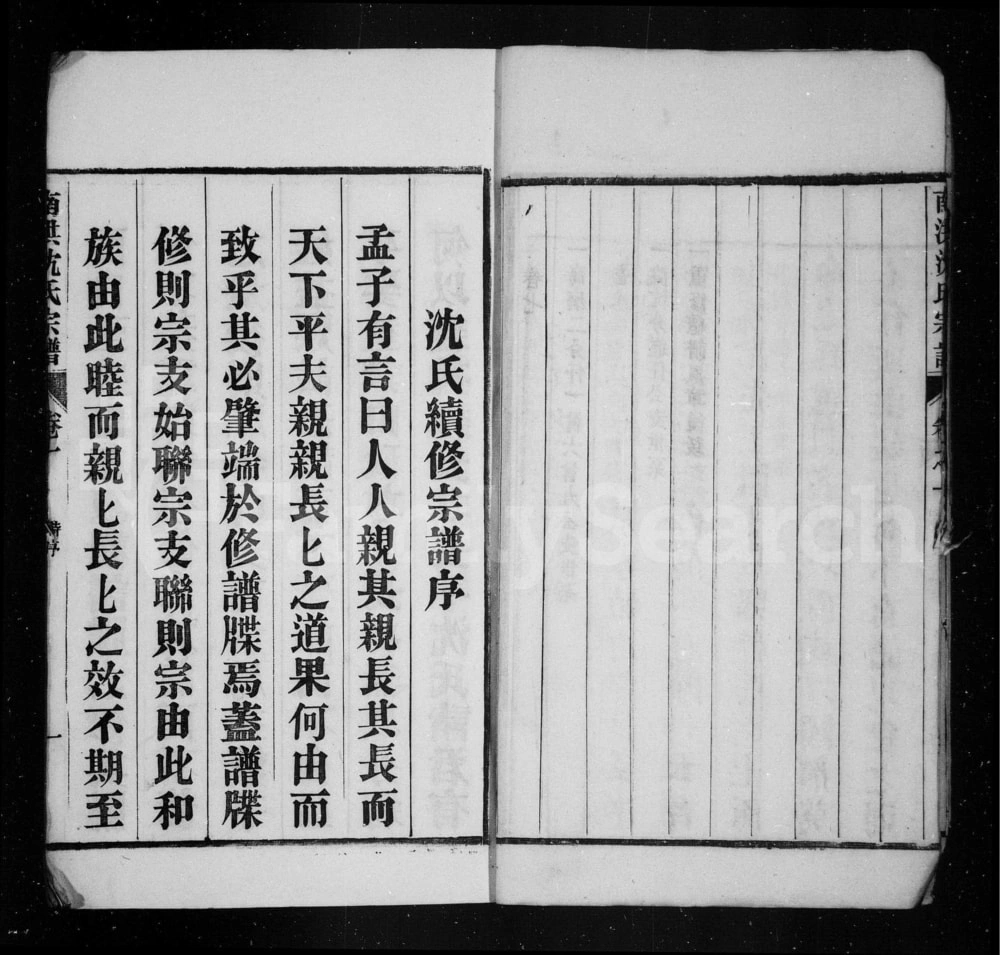 沈氏續修宗譜序
孟子有言曰人人親其親長其長而
天下平夫親親長匕之道果何由而
致乎其必肇端於修譜牒焉蓋譜牒
修則宗支始聯宗支聯則宗由此和
族由此睦而親匕長匕之效不期至
沈氏宗譜
卷七
一
沈氏宗譜